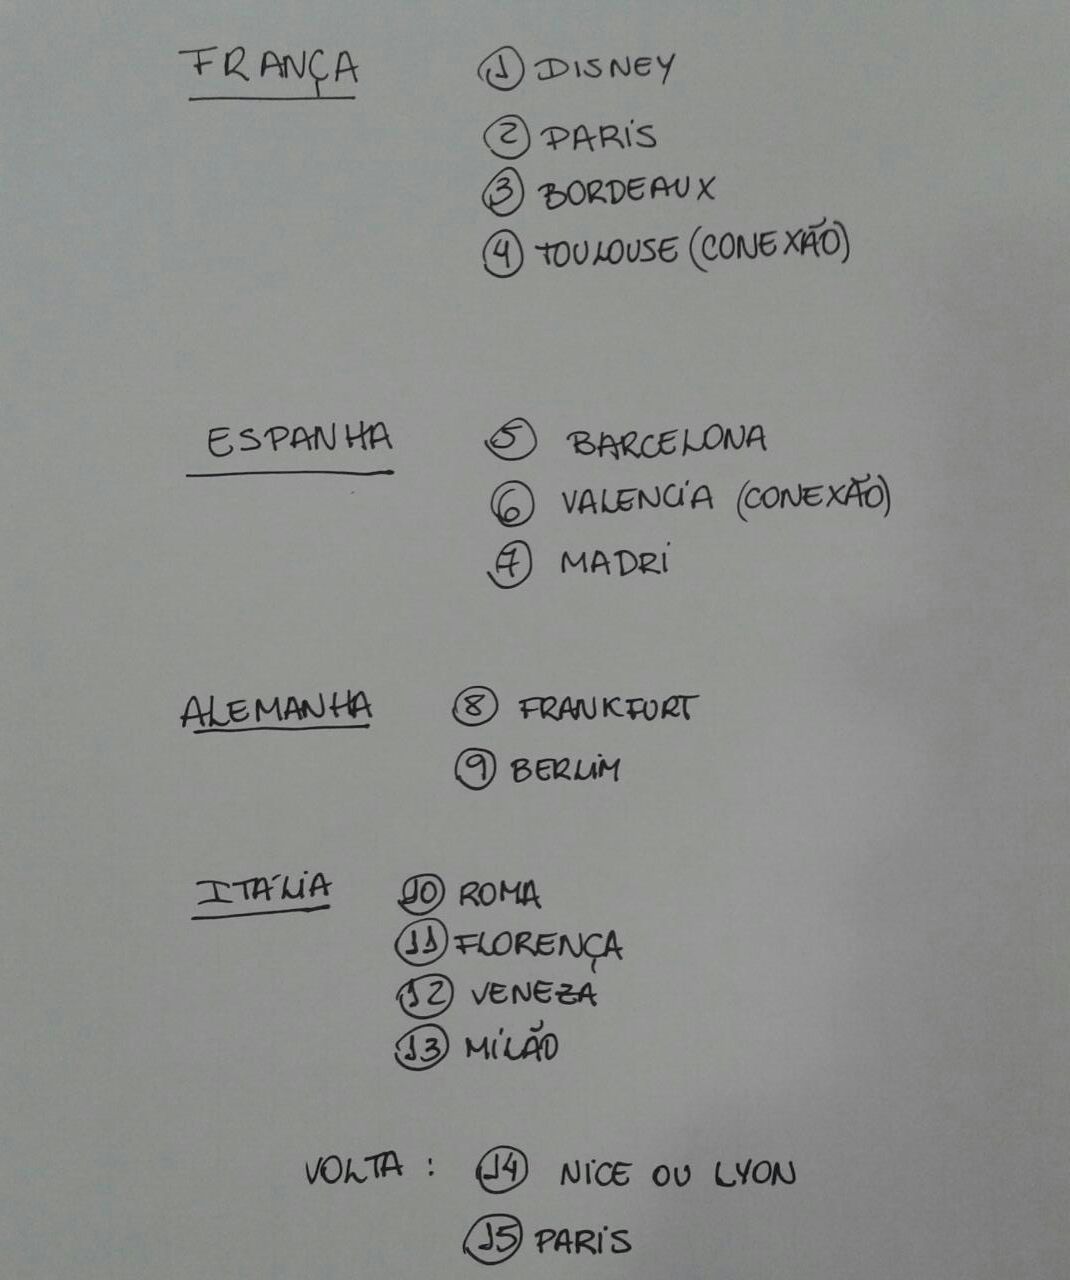 FRANÇA 1 DISNEY
2 PARIS
3 BORDEAUX
4 TOULOUSE (CONEXÃO)
ESPANHA 5 BARCELONA
6 VALENCIA (CONEXÃO)
7 MADRI
ALEMANHA 8 FRANKFURT
9 BERLIM
ITÁLIA 10 ROMA
11 FLORENÇA
12 VENEZA
13 MILÃO
VOLTA : 14 NICE OU LYON
15 PARIS